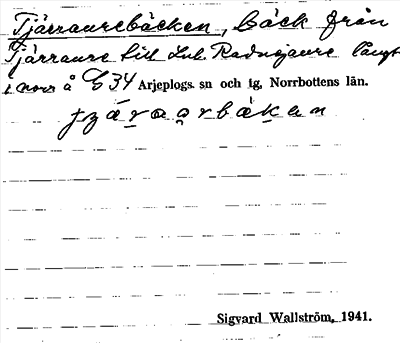 Tjärraurebäcken, bäck från
Tjärraure till Lul. Radnejaure långt
i norr å E34 Arjeplogs sn och tg, Norrbottens län.
Sigvard Wallström, 1941.